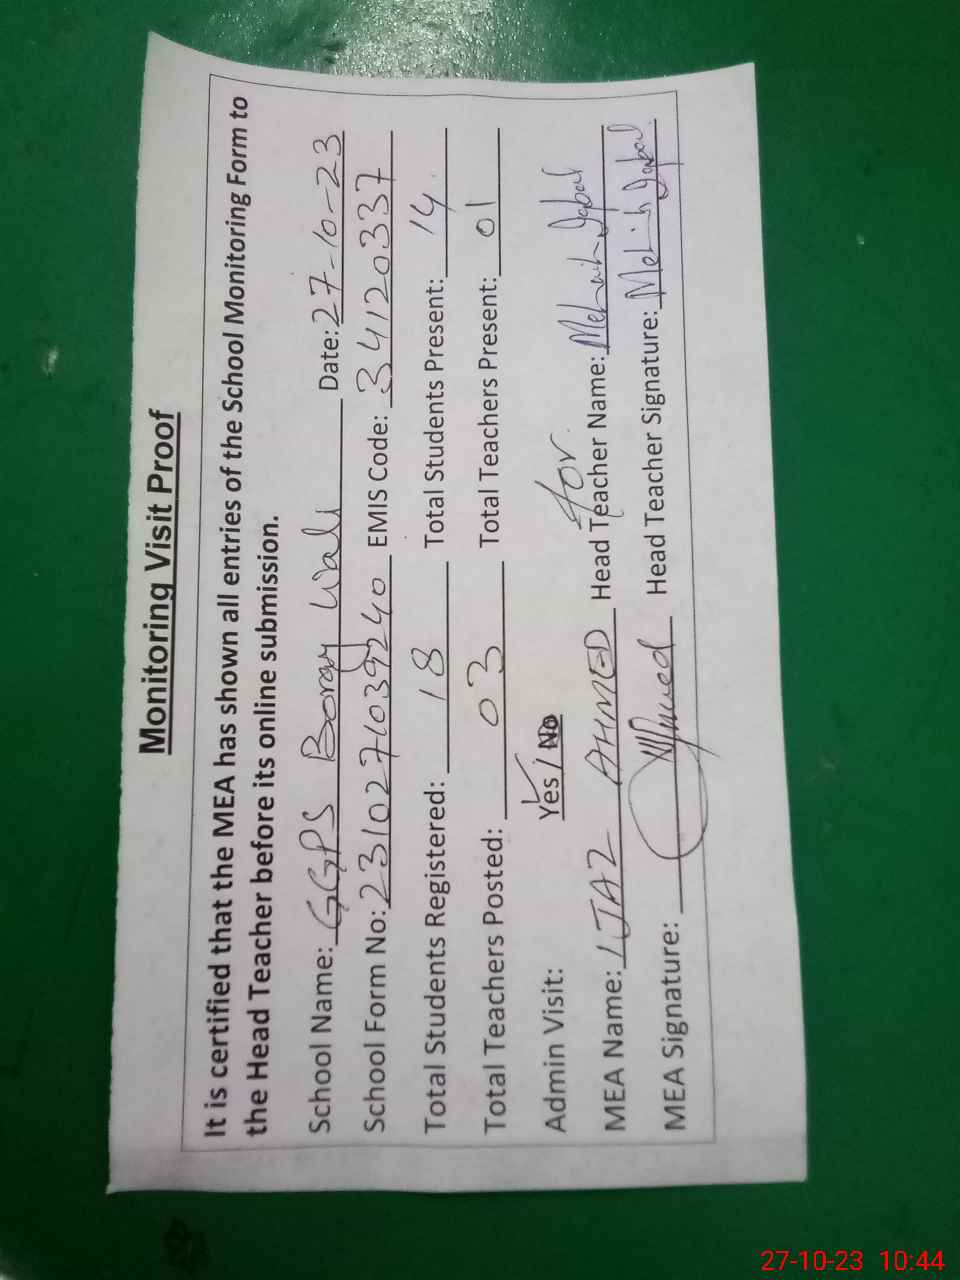 Monitoring Visit Proof
It is certified that the MEA has shown all entries of the School Monitoring Form to
the Head Teacher before its online submission.
School Name: GGPS Borgy Wali Date: 27-10-23
School Form No: 2310271039240 EMIS Code: 34120337
Total Students Registered: 18 Total Students Present: 14
Total Teachers Posted: 03 Total Teachers Present: 01
Admin Visit: Yes / No
for
MEA Name: IJAZ AHMED Head Teacher Name: Iqbal
MEA Signature: Ahmed Head Teacher Signature: Iqbal
27-10-23 10:44